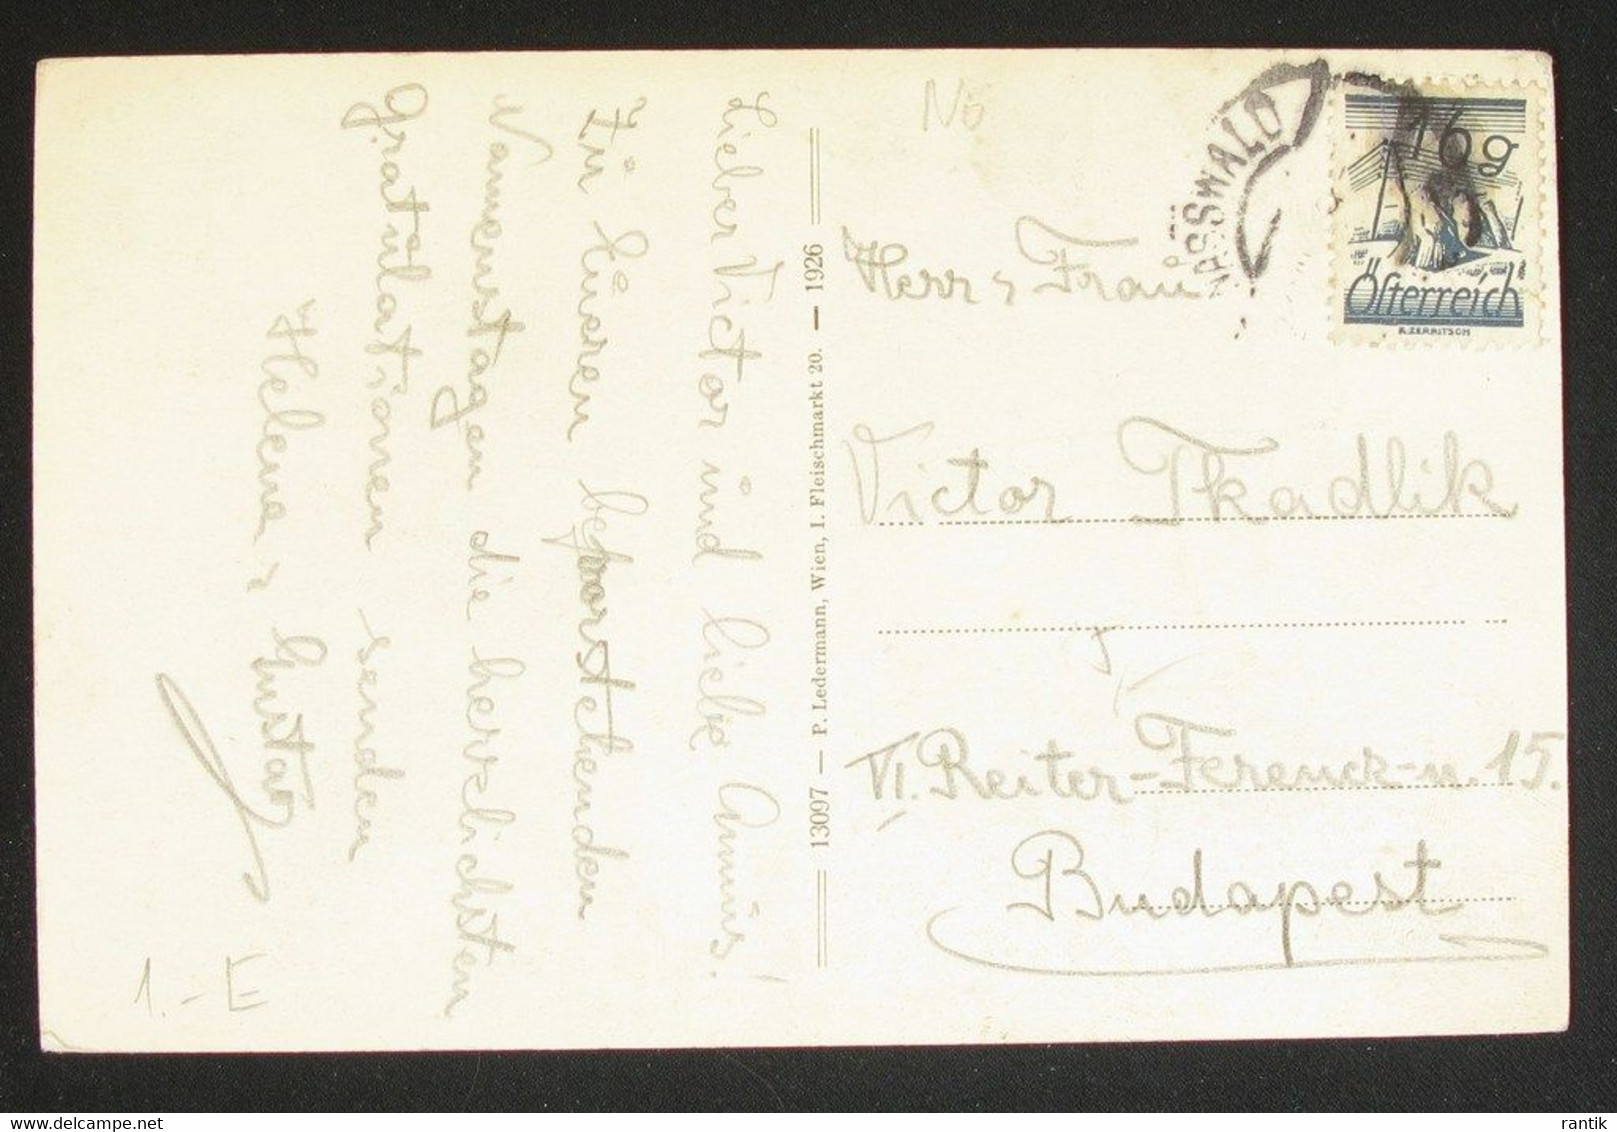 Lieber Victor und liebe Annus!
Zu Eueren bevorstehenden
Namenstagen die herzlichsten
Gratulationen senden
Helene & Gustav
1.- E
13097 — P. Ledermann, Wien, I. Fleischmarkt 20. — 1926
Nö
NASSWALD
16g
Österreich
R.ZERRITSCH
Herr & Frau
Victor Tkadlik
VI. Reiter-Ferencz-u. 15.
Budapest
rantik